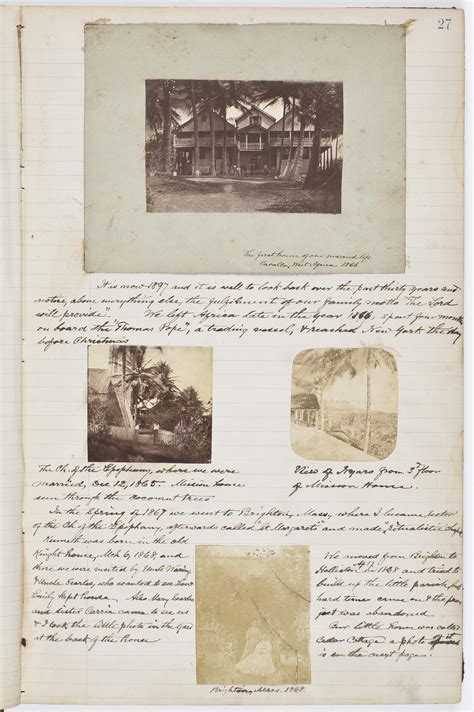 27
The first house of our married life
Cavalla, West Africa 1866
It is now 1897 and it is well to look back over the past thirty years and
notice, above everything else, the fulfilment of our family motto "The Lord
will provide". We left Africa late in the year '66, spent four months
on board the "Thomas Pope", a trading vessel, & reached New York the day
before Christmas
The Ch. of the Epiphany, where we were
married, Dec 12, 1865. Mission house
seen through the cocoanut trees
View of from 3d floor
of Mission House.
In the Spring of 1867 we went to Brighton, Mass, where I became rector
of the Ch. of the Epiphany afterwards called St. Margarets and made "ritualistic"
Kenneth was born in the old
Knight house, Mch 6, 1868 and
there we were visited by Uncle
& Uncle Parks, who wanted to see how
Emily kept house. Also Mary
and sister Carrie came to see us
& I took the little photo in the yard
at the back of the house
We moved from Brighton to
Holliston in 1868 and tried to
build up the little parish, but
hard times came on & the
was abandoned
Our little house was called
Cedar Cottage a photo
is on the next page.
Brighton, Mass. 1868.